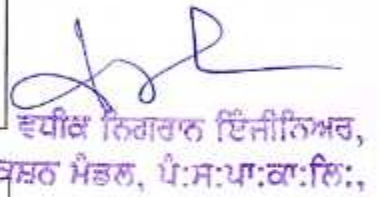 ਵਧੀਕ ਨਿਗਰਾਨ ਇੰਜੀਨਿਅਰ,
ਕਸ਼ਨ ਮੰਡਲ, ਪੰ:ਸ:ਪਾ:ਕਾ:ਲਿ:,